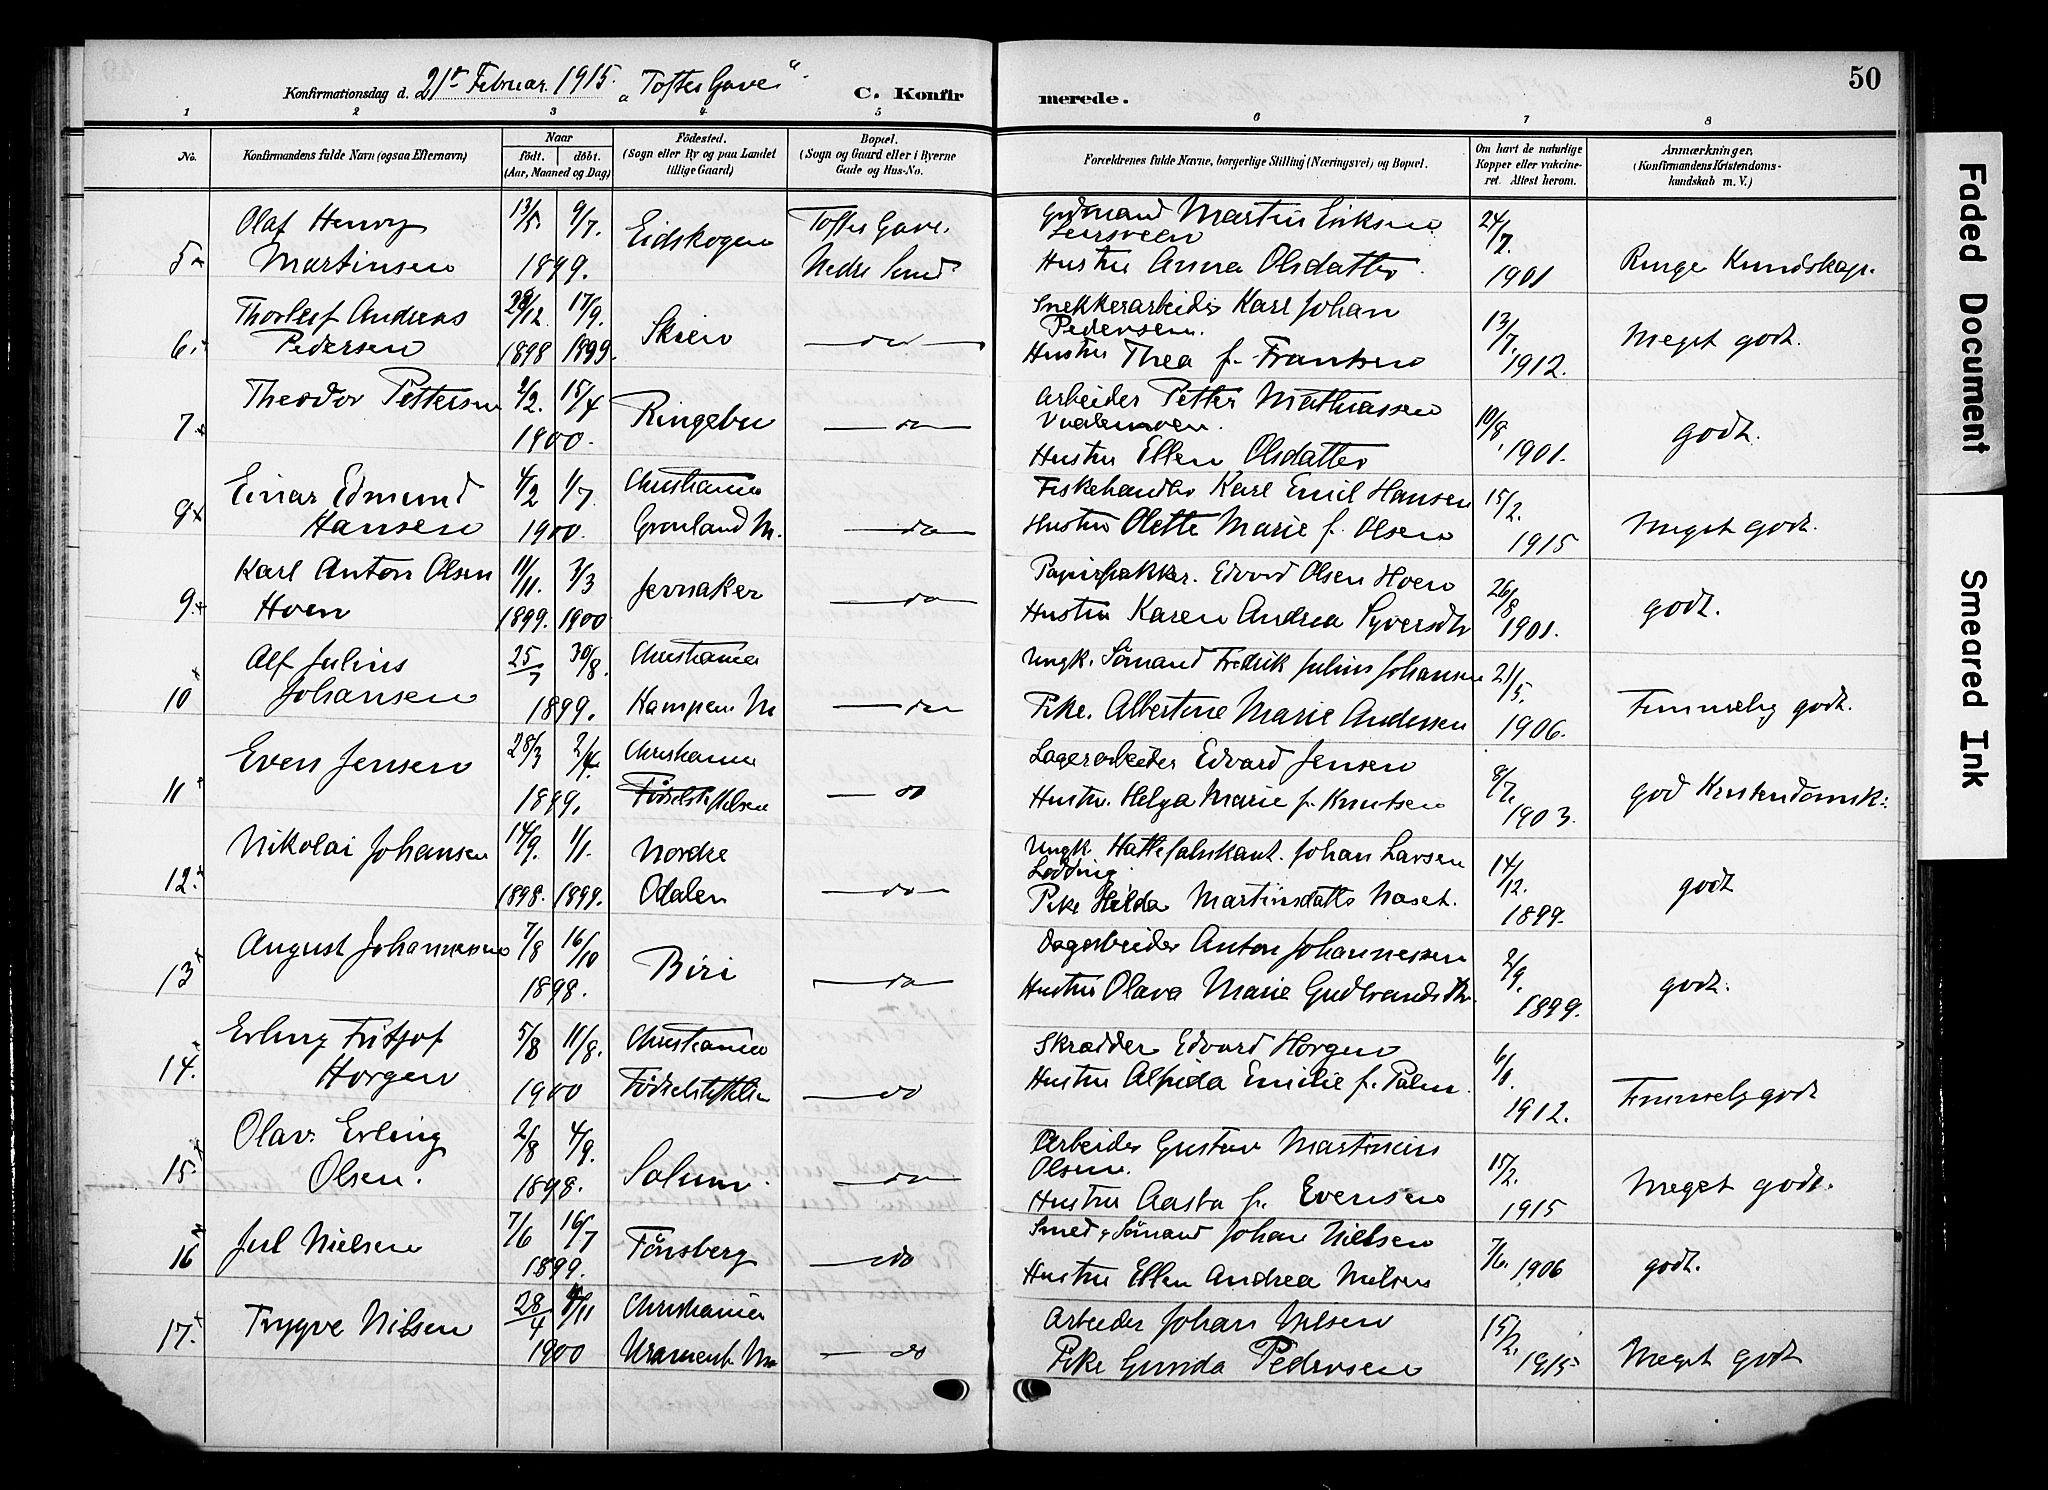 50
Konfirmationsdag d. 21de Februar 1915. "Toftes Gave"
C. Konfirmerede.
1 2 3 4 5 6 7 8
No.
Konfirmandens fulde Navn (ogsaa Efternavn)
Naar
födt. döbt.
(Aar, Maaned og Dag)
Födested.
(Sogn eller By og paa Landet
tillige Gaard)
Bopæl.
(Sogn og Gaard eller i Byerne
Gade og Hus-No.
Forældrenes fulde Navne, borgerlige Stilling (Næringsvei) og Bopæl.
Om havt de naturlige
Kopper eller vakcine-
ret. Attest herom.
Anmærkninger,
(Konfirmandens Kristendoms-
kundskab m. V.)
Olaf Henry 13/5 9/7. Eidskogen Toftes Gave. Martin Eriksen 24/7.
5 Martinsen 1899. Nedre Sund Hustru Anna Olsdatter. 1901 Ringe Kundskap.
Thorleif Andreas 17/9. Snekkerarbeider Karl Johan
Pedersen. 13/7.
6. Pedersen 1898 1899. Skien do Hustru Thea f. Frantsen 1912. Meget godt.
Theodor Pettersen 2/2. 15/4 Arbeider Petter Mathiassen
7 1900. Ringebu do Hustru Ellen Olsdatter 10/8. 1901. godt.
Einar Edmund 4/2 1/7 Christiania Fiskehandler Karl Emil Hansen 15/2.
9 Hansen 1900. Grønland M. do Hustru Olette Marie f. Olsen 1915 Meget godt.
Karl Anton Olsen 11/11. 3/3 Jevnaker Papirpakker. Edvard Olsen Hoen 26/8
9. Hoen 1899. 1900 do Hustru Karen Andrea Syversdtr 1901. godt.
Alf Julius 25/7 30/8. Christiania Ungk. Sømand Fredrik Julius Johansen 21/5.
10 Johansen 1899. Kampen M do Pike. Albertine Marie Andersen 1906. Temmelig godt.
Even Jensen 28/3 2/4. Christiania Lagerarbeider Edvard Jensen 8/7.
11 1899. Fødselsstiftelsen do Hustru. Helga Marie f. Knutsen 1903. god Kristendomsk:
Nikolai Johansen 14/9. 1/1. Nordre Ungk. Hattefabrikant. Johan Larsen
Lødding 14/12.
12. 1898. 1899. Odalen do Pike Hilda Martinsdatter Naset. 1899. godt
August Johannessen 7/8 16/10 Dagarbeider Anton Johannessen 2/9.
13 1898. Biri do Hustru Olava Marie Gudbrandsdtr. 1899. godt.
Erling Fritjof 5/8 11/8. Christiania Skrædder Edvard Horgen 6/1.
14. Horgen 1900 Fødselsstiftelsen do Hustru Alfrida Emilie f. Palm. 1912. Temmelig godt
Olav. Erling 2/8 4/9. Arbeider Gustav Martinius
Olsen. 15/2.
15. Olsen. 1898. Solum. do Hustru Aasta f. Evensen 1915 Meget godt.
16 Jul Nielsen 7/6 16/7 Tønsberg do Smed, Sømand Johan Nielsen
1899. Hustru Ellen Andrea Nielsen 7/6. 1906 godt.
Trygve Nilsen 28/4 Christiania Arbeider Johan Nilsen 15/2.
17. 1900 Uranienb. M. do Pike Gunda Pedersen 1915 Meget godt
Faded Document
Smeared Ink